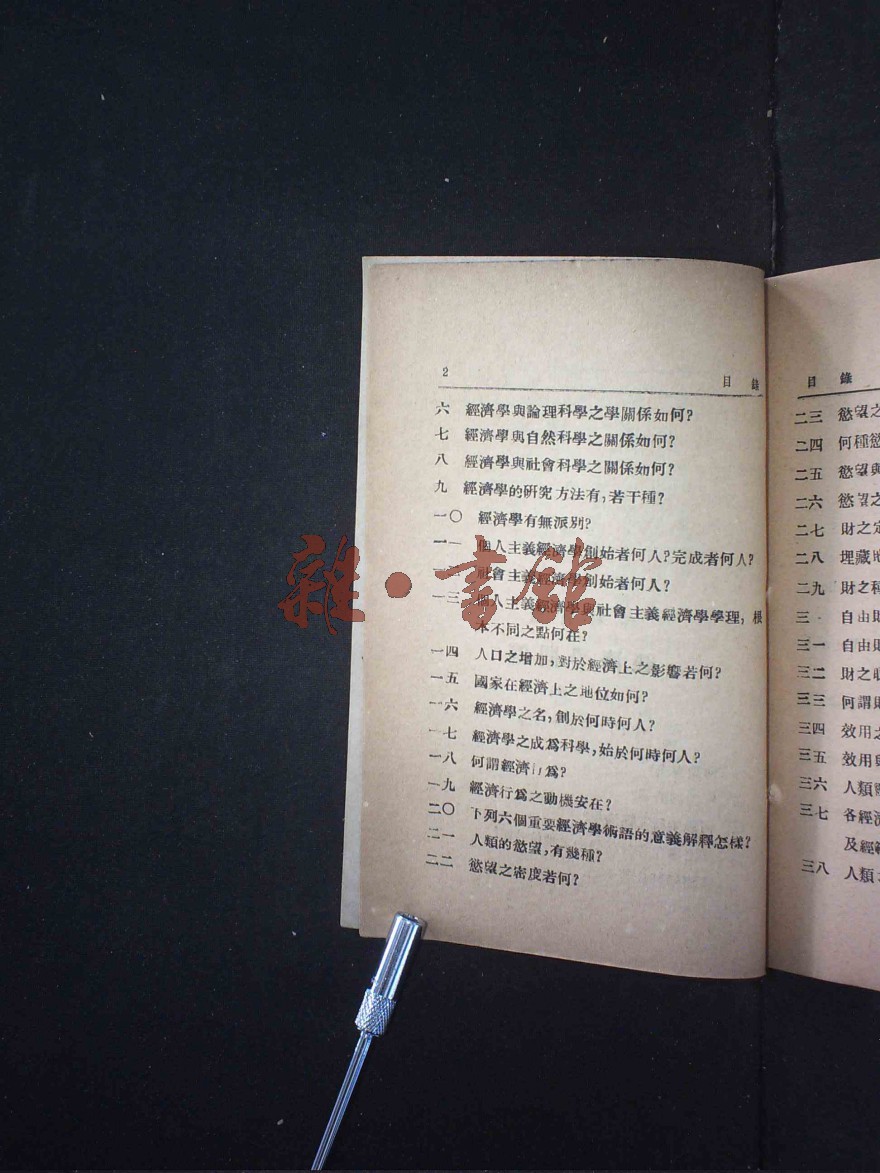 2 目錄
六 經濟學與論理科學之學關係如何?
七 經濟學與自然科學之關係如何?
八 經濟學與社會科學之關係如何?
九 經濟學的研究方法有,若干種?
一〇 經濟學有無派別?
一一 個人主義經濟學創始者何人?完成者何人?
一二 社會主義經濟學創始者何人?
一三 個人主義經濟學與社會主義經濟學學理,根
本不同之點何在?
一四 人口之增加,對於經濟上之影響若何?
一五 國家在經濟上之地位如何?
一六 經濟學之名,創於何時何人?
一七 經濟學之成爲科學,始於何時何人?
一八 何謂經濟行爲?
一九 經濟行爲之動機安在?
二〇 下列六個重要經濟學術語的意義解釋怎樣?
二一 人類的慾望,有幾種?
二二 慾望之密度若何?
目錄
二三 慾望之
二四 何種慾
二五 慾望與
二六 慾望之
二七 財之定
二八 埋藏地
二九 財之種
三 自由財
三一 自由財
三二 財之
三三 何謂財
三四 效用之
三五 效用與
三六 人類
三七 各經濟
及經
三八 人類
雜·書館